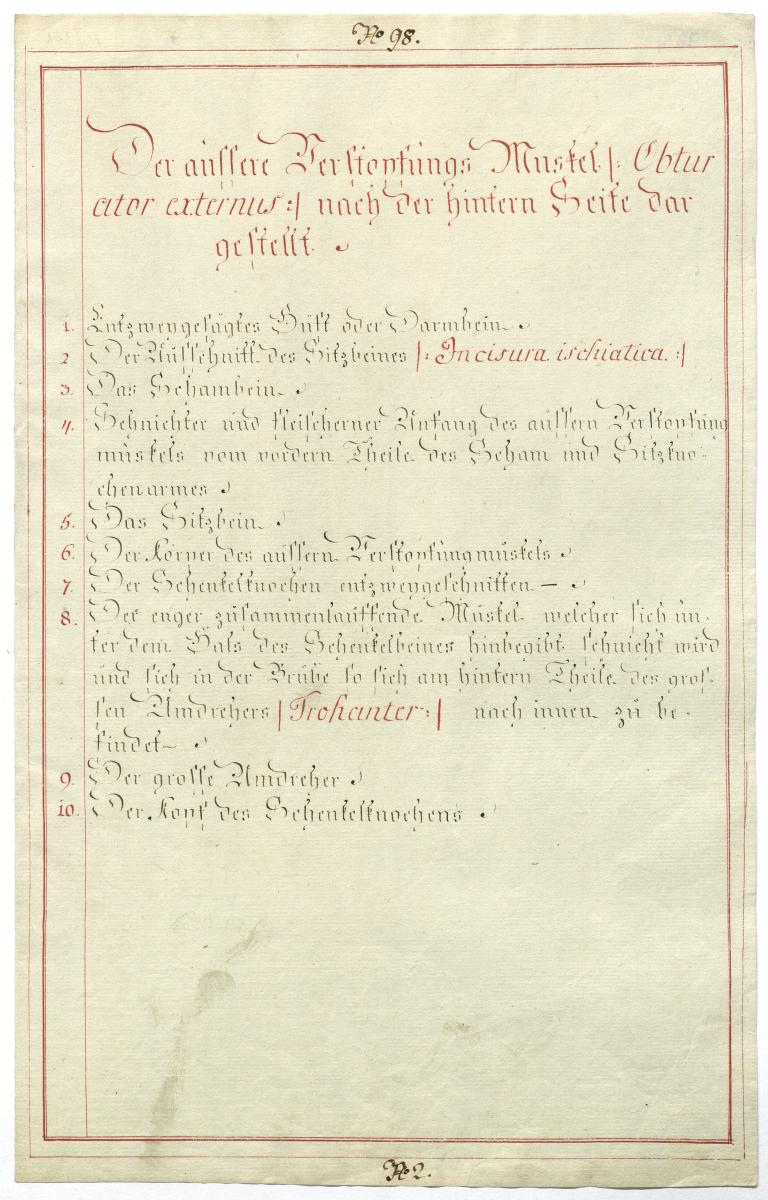 No 98.
Der äussere Verstopfungs Muskel |: Obtur
ator externus :| nach der hintern Seite dar
gestellt.
1. Entzweygesägtes Hüft oder Darmbein.
2 Der Ausschnitt des Sitzbeines |: Incisura ischiatica. :|
3. Das Schambein.
4. Sehnichter und fleischerner Anfang des äussern Verstopfung
muskels vom vordern Theile des Scham und Sitzkno-
chenarmes
5. Das Sitzbein.
6. Der Körper des äussern Verstopfungmuskels
7. Der Schenkelknochen entzweygeschnitten –
8. Der enger zusammenlauffende Muskel welcher sich un-
ter dem Hals des Schenkelbeines hinbegibt sehnicht wird
und sich in der Grube so sich am hintern Theile des gros-
sen Umdrehers | Trohanter :| nach innen zu be-
findet –
9. Der grosse Umdreher
10. Der Kopf des Schenkelknochens
No 2.